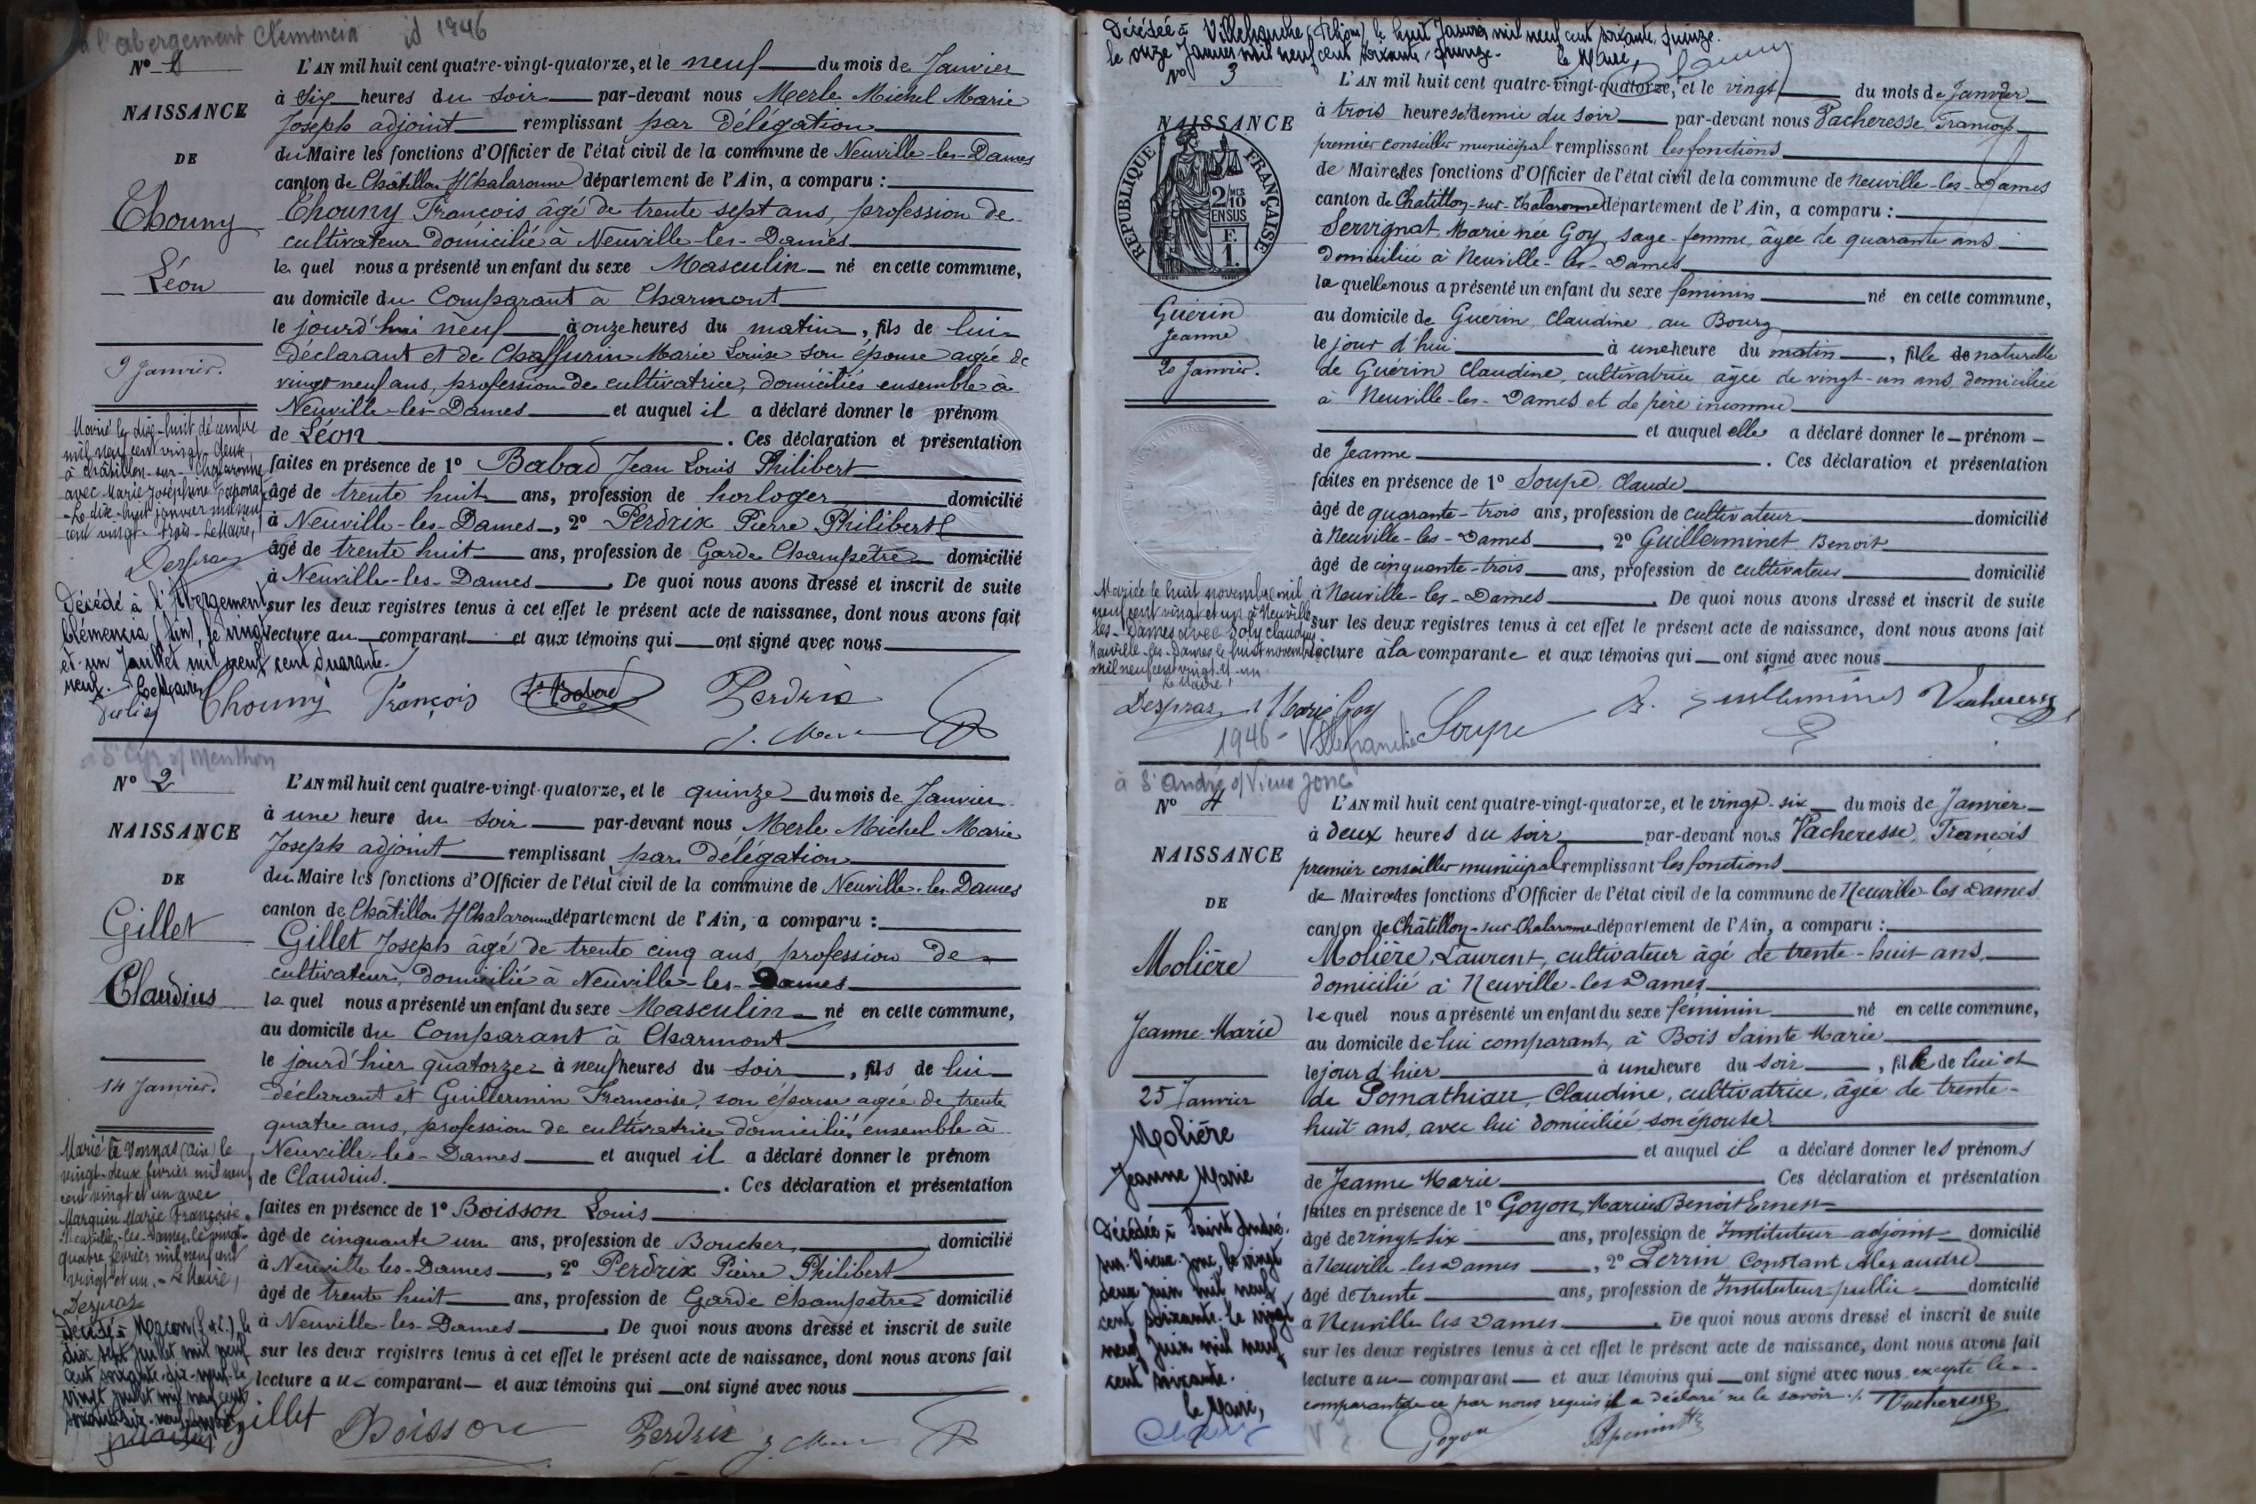 à l'abergement Clemencia id 1946
N° 1
NAISSANCE
DE
Chouny
Léon
9 Janvier.
L'AN mil huit cent quatre-vingt-quatorze, et le neuf du mois de Janvier
à Six heures du soir par-devant nous Merle Michel Marie
Joseph adjoint remplissant par délégation
du Maire les fonctions d'Officier de l'état civil de la commune de Neuville-les-Dames
canton de Châtillon s/Chalaronne département de l'Ain, a comparu :
Chouny François âgé de trente sept ans, profession de
cultivateur domicilié à Neuville-les-Dames
le quel nous a présenté un enfant du sexe Masculin né en cette commune,
au domicile du Comparant à Charmont
le jourd'hui neuf à onze heures du matin, fils de lui
déclarant et de Chaffurin Marie Louise son épouse agée de
vingt neuf ans, profession de cultivatrice, domiciliés ensemble à
Neuville-les-Dames et auquel il a déclaré donner le prénom
de Léon. Ces déclaration et présentation
faites en présence de 1° Babad Jean Louis Philibert
âgé de trente huit ans, profession de horloger domicilié
à Neuville-les-Dames, 2° Perdrix Pierre Philibert
âgé de trente huit ans, profession de Garde Champêtre domicilié
à Neuville-les-Dames. De quoi nous avons dressé et inscrit de suite
sur les deux registres tenus à cet effet le présent acte de naissance, dont nous avons fait
lecture au comparant et aux témoins qui ont signé avec nous
Marié le dix-huit décembre
mil neuf cent vingt-deux,
à Châtillon-sur-Chalaronne
avec Marie Joséphine
Le dix-huit janvier mil neuf
cent vingt-trois. Le Maire,
Despras
Décédé à l'Abergement
Clémencia (Ain), le vingt
et un Juillet mil neuf cent quarante-
neuf. Le Maire
Chouny François Babad Perdrix
J. Merle
à St Cyr s/ Menthon
N° 2
NAISSANCE
DE
Gillet
Claudius
14 Janvier.
L'AN mil huit cent quatre-vingt-quatorze, et le quinze du mois de Janvier
à une heure du soir par-devant nous Merle Michel Marie
Joseph adjoint remplissant par délégation
du Maire les fonctions d'Officier de l'état civil de la commune de Neuville-les-Dames
canton de Châtillon s/Chalaronne département de l'Ain, a comparu :
Gillet Joseph âgé de trente cinq ans, profession de
cultivateur, domicilié à Neuville-les-Dames
le quel nous a présenté un enfant du sexe Masculin né en cette commune,
au domicile du Comparant à Charmont
le jourd'hier quatorze à neuf heures du soir, fils de lui
déclarant et Guillermin Françoise, son épouse agée de trente
quatre ans, profession de cultivatrice domiciliés ensemble à
Neuville-les-Dames et auquel il a déclaré donner le prénom
de Claudius. Ces déclaration et présentation
faites en présence de 1° Boisson Louis
âgé de cinquante un ans, profession de Boucher domicilié
à Neuville les-Dames, 2° Perdrix Pierre Philibert
âgé de trente huit ans, profession de Garde Champêtre domicilié
à Neuville-les-Dames. De quoi nous avons dressé et inscrit de suite
sur les deux registres tenus à cet effet le présent acte de naissance, dont nous avons fait
lecture au comparant et aux témoins qui ont signé avec nous
Marié à Vonnas (Ain) le
vingt-deux février mil neuf
cent vingt et un avec
Marguin Marie Françoise.
Neuville-les-Dames, le vingt-
quatre février mil neuf cent
vingt et un. Le Maire,
Despras
Décédé à Macon (S & L), le
dix sept Juillet mil neuf
cent soixante-dix-neuf. Le
vingt Juillet mil neuf cent
soixante-dix-neuf
Gillet Boisson Perdrix J. Merle
Décédée à Villefranche (Rhône) le huit Janvier mil neuf cent soixante-quinze.
le onze Janvier mil neuf cent soixante-quinze. le Maire,
N° 3
NAISSANCE
REPUBLIQUE FRANÇAISE
2/10 EN SUS
F. 1.
Guérin
Jeanne
20 Janvier.
L'AN mil huit cent quatre-vingt-quatorze, et le vingt du mois de Janvier
à trois heures et demie du soir par-devant nous Vacheresse François
premier conseiller municipal remplissant les fonctions
de Maire des fonctions d'Officier de l'état civil de la commune de Neuville-les-Dames
canton de Chatillon-sur-Chalaronne département de l'Ain, a comparu :
Servignat Marie née Goy sage-femme, âgée de quarante ans
domiciliée à Neuville-les-Dames
la quelle nous a présenté un enfant du sexe féminin né en cette commune,
au domicile de Guérin Claudine au Bourg
le jour d'hui à une heure du matin, fille de naturelle
de Guérin Claudine, cultivatrice âgée de vingt-un ans domiciliée
à Neuville-les-Dames et de père inconnu
et auquel elle a déclaré donner le prénom
de Jeanne. Ces déclaration et présentation
faites en présence de 1° Soupe Claude
âgé de quarante-trois ans, profession de cultivateur domicilié
à Neuville-les-Dames, 2° Guillerminet Benoit
âgé de cinquante-trois ans, profession de cultivateur domicilié
à Neuville-les-Dames. De quoi nous avons dressé et inscrit de suite
sur les deux registres tenus à cet effet le présent acte de naissance, dont nous avons fait
lecture à la comparante et aux témoins qui ont signé avec nous
Mariée le huit novembre mil
neuf cent vingt et un à Neuville
les-Dames avec Joly Claudius
Neuville-les-Dames le huit novembre
mil neuf cent vingt-et-un
Le Maire,
Despras Marie Goy Soupe B. Guillerminet Vacheresse
1946 - Villefranche
à St André s/ Vieux Jonc
N° 4
NAISSANCE
DE
Molière
Jeanne Marie
25 Janvier
L'AN mil huit cent quatre-vingt-quatorze, et le vingt-six du mois de Janvier
à deux heures du soir par-devant nous Vacheresse, François
premier conseiller municipal remplissant les fonctions
de Maire des fonctions d'Officier de l'état civil de la commune de Neuville-les Dames
canton de Châtillon-sur-Chalaronne département de l'Ain, a comparu :
Molière, Laurent, cultivateur âgé de trente-huit ans,
domicilié à Neuville-les Dames
le quel nous a présenté un enfant du sexe féminin né en cette commune,
au domicile de lui comparant, à Bois Sainte Marie
le jour d'hier à une heure du soir, fille de lui et
de Pomathiau, Claudine, cultivatrice, âgée de trente-
huit ans, avec lui domiciliée son épouse
et auquel il a déclaré donner les prénoms
de Jeanne Marie Ces déclaration et présentation
faites en présence de 1° Goyon, Marius Benoit Ernest
âgé de vingt-six ans, profession de Instituteur adjoint domicilié
à Neuville-les Dames, 2° Perrin Constant Alexandre
âgé de trente ans, profession de Instituteur public domicilié
à Neuville les Dames. De quoi nous avons dressé et inscrit de suite
sur les deux registres tenus à cet effet le présent acte de naissance, dont nous avons fait
lecture au comparant et aux témoins qui ont signé avec nous excepté le
comparant de ce par nous requis il a déclaré ne le savoir. Vacheresse
Molière
Jeanne Marie
Décédée à Saint André-
sur-Vieux-Jonc, le vingt
deux juin mil neuf
cent soixante. le vingt
neuf juin mil neuf
cent soixante.
le Maire,
Goyon